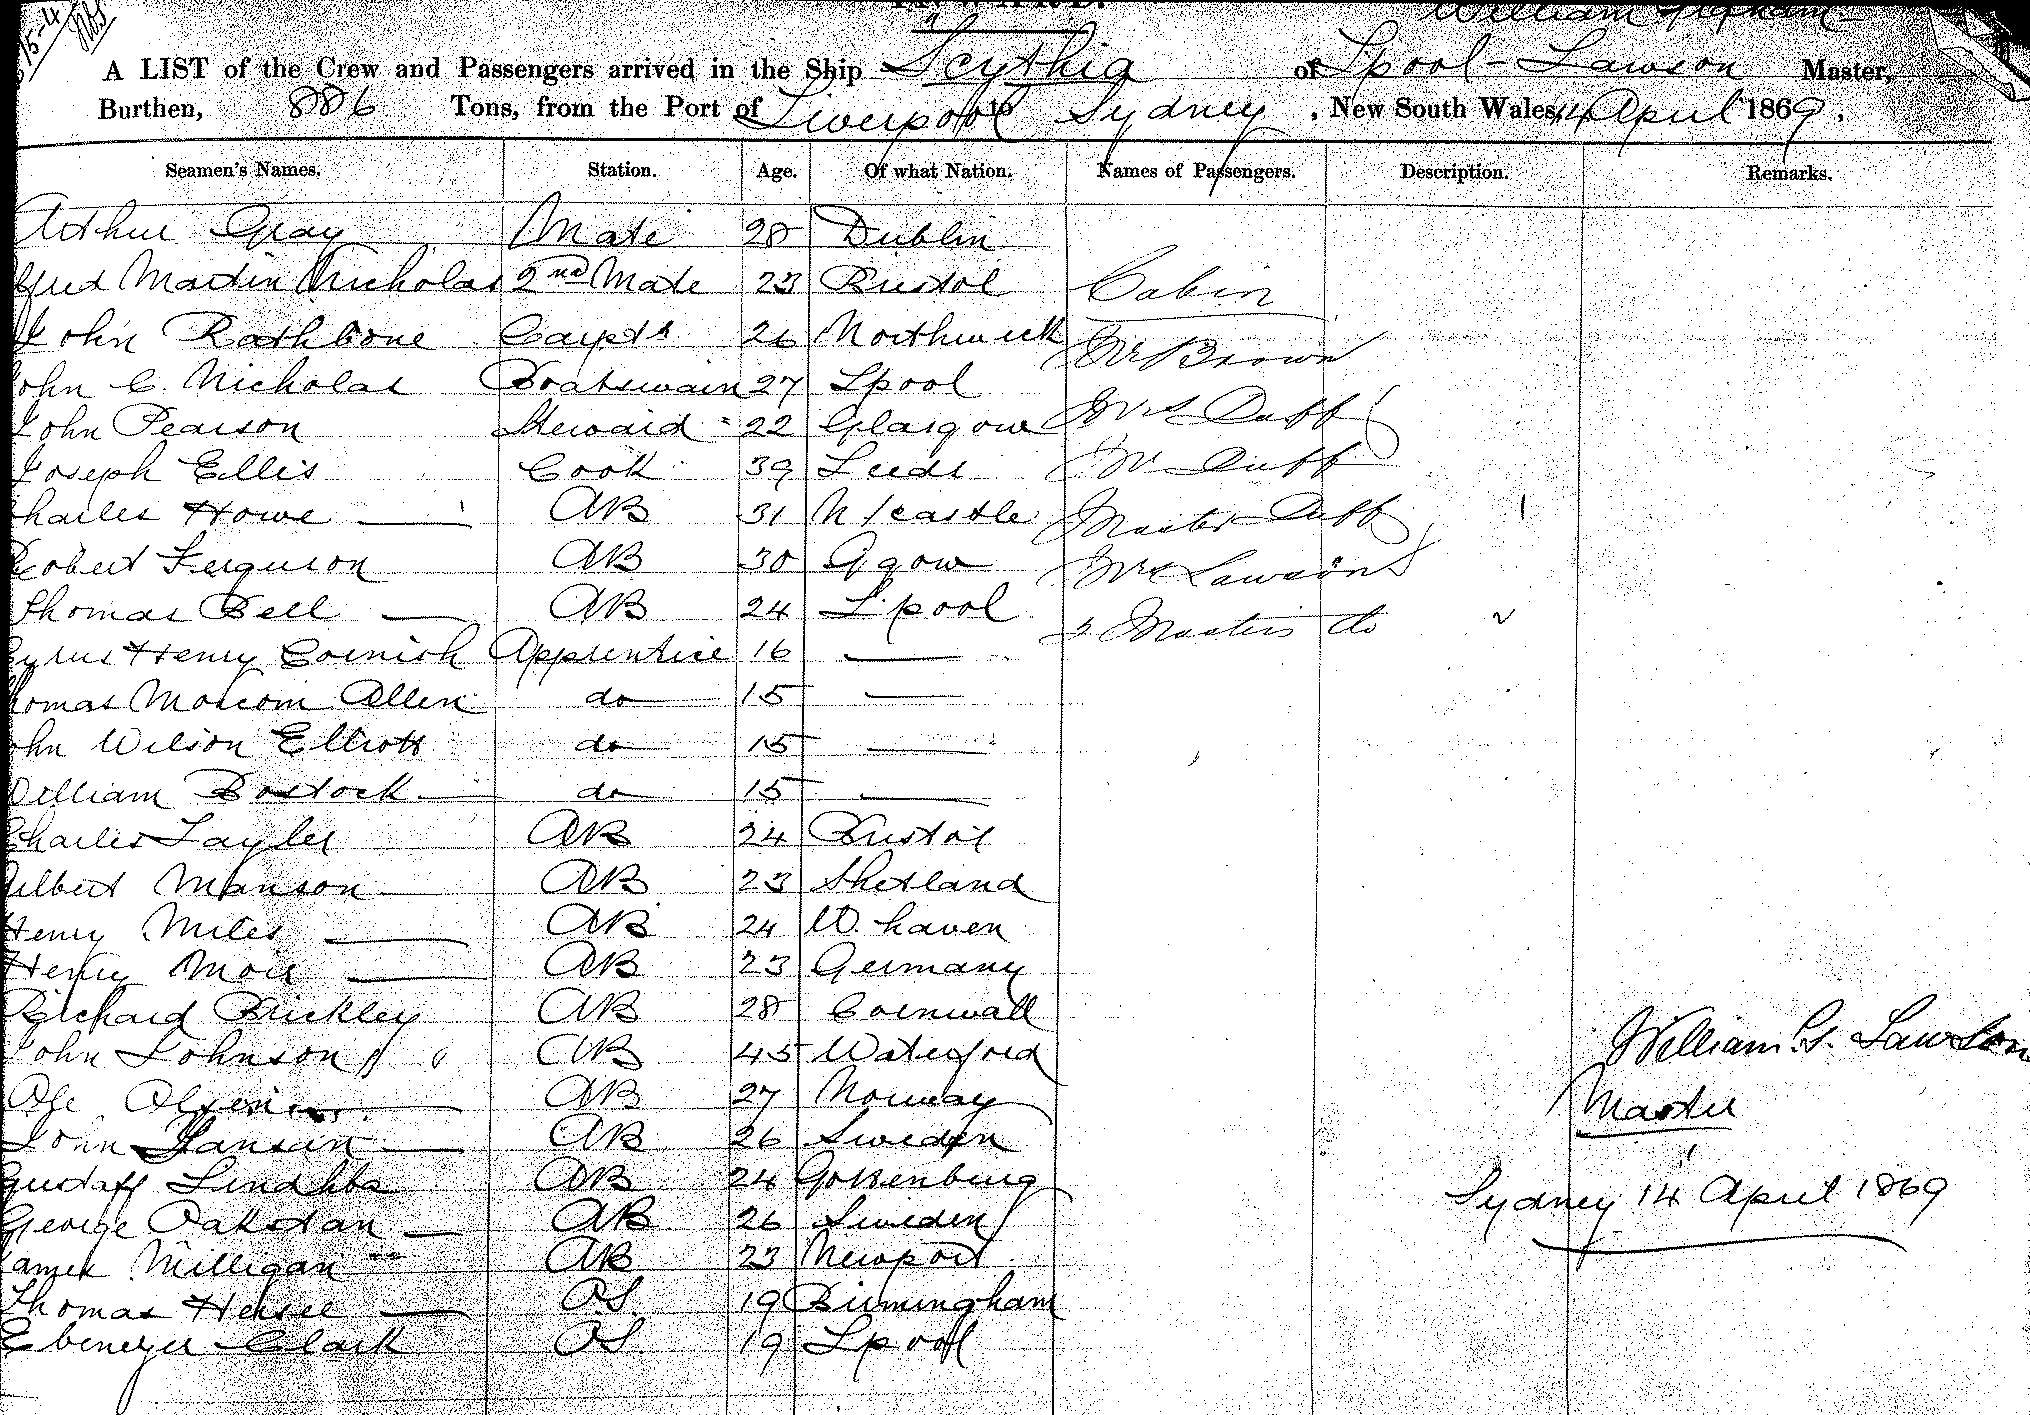 15-4
INWARD.
A LIST of the Crew and Passengers arrived in the Ship Scythia of Lpool - Lawson Master,
Burthen, 886 Tons, from the Port of Liverpool to Sydney, New South Wales, 14 April 1869,
Seamen's Names. Station. Age. Of what Nation. Names of Passengers. Description. Remarks.
Arthur Gray Mate 28 Dublin
lfred Martin Nicholas 2nd Mate 23 Bristol Cabin
John Rathbone Carptr 26 Northwich Mr Brown
John C. Nicholas Boatswain 27 Lpool
John Pearson Steward 22 Glasgow Mrs Duff
Joseph Ellis Cook 39 Leeds Mr Duff
Charles Howe AB 31 N/castle Master Duff
Robert Ferguson AB 30 Ggow Mrs Lawson
Thomas Bell AB 24 L.pool 2 Masters do
Cyrus Henry Cornish Apprentice 16 —
homas Allen do 15 —
ohn Wilson Elliott do 15 —
William Bostock do 15 —
Charles Tayler AB 24 Bristol
Manson AB 23 Shetland
Henry Miles AB 24 W. haven
Henry AB 23 Germany
Richard Brickley AB 28 Cornwall
John Johnson AB 45 Waterford
Ole AB 27 Norway
John Hansen AB 26 Sweden
Gustaff AB 24 Gottenburg
George AB 26 Sweden
James Milligan AB 23 Newport
Thomas Hersee OS. 19 Birmingham
Ebenezer Clark OS 19 Lpool
William G. Lawson
Master
Sydney 14 April 1869